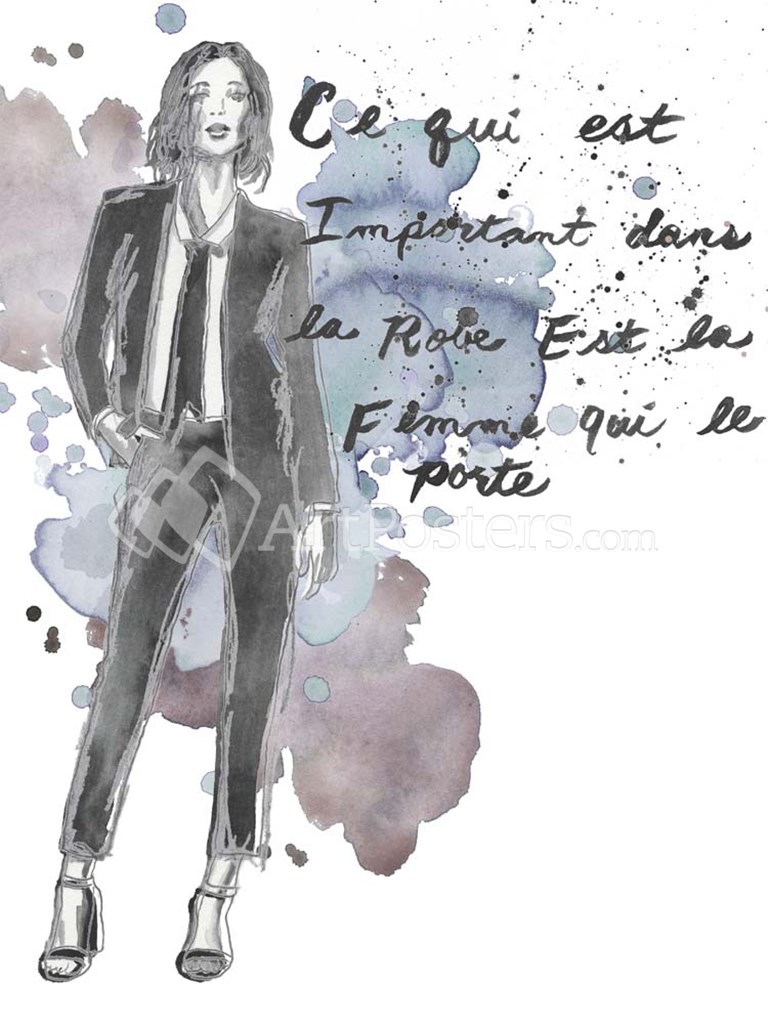 Ce qui est
Important dans
la Rove Est la
Femme qui le
porte
ArtPosters.com